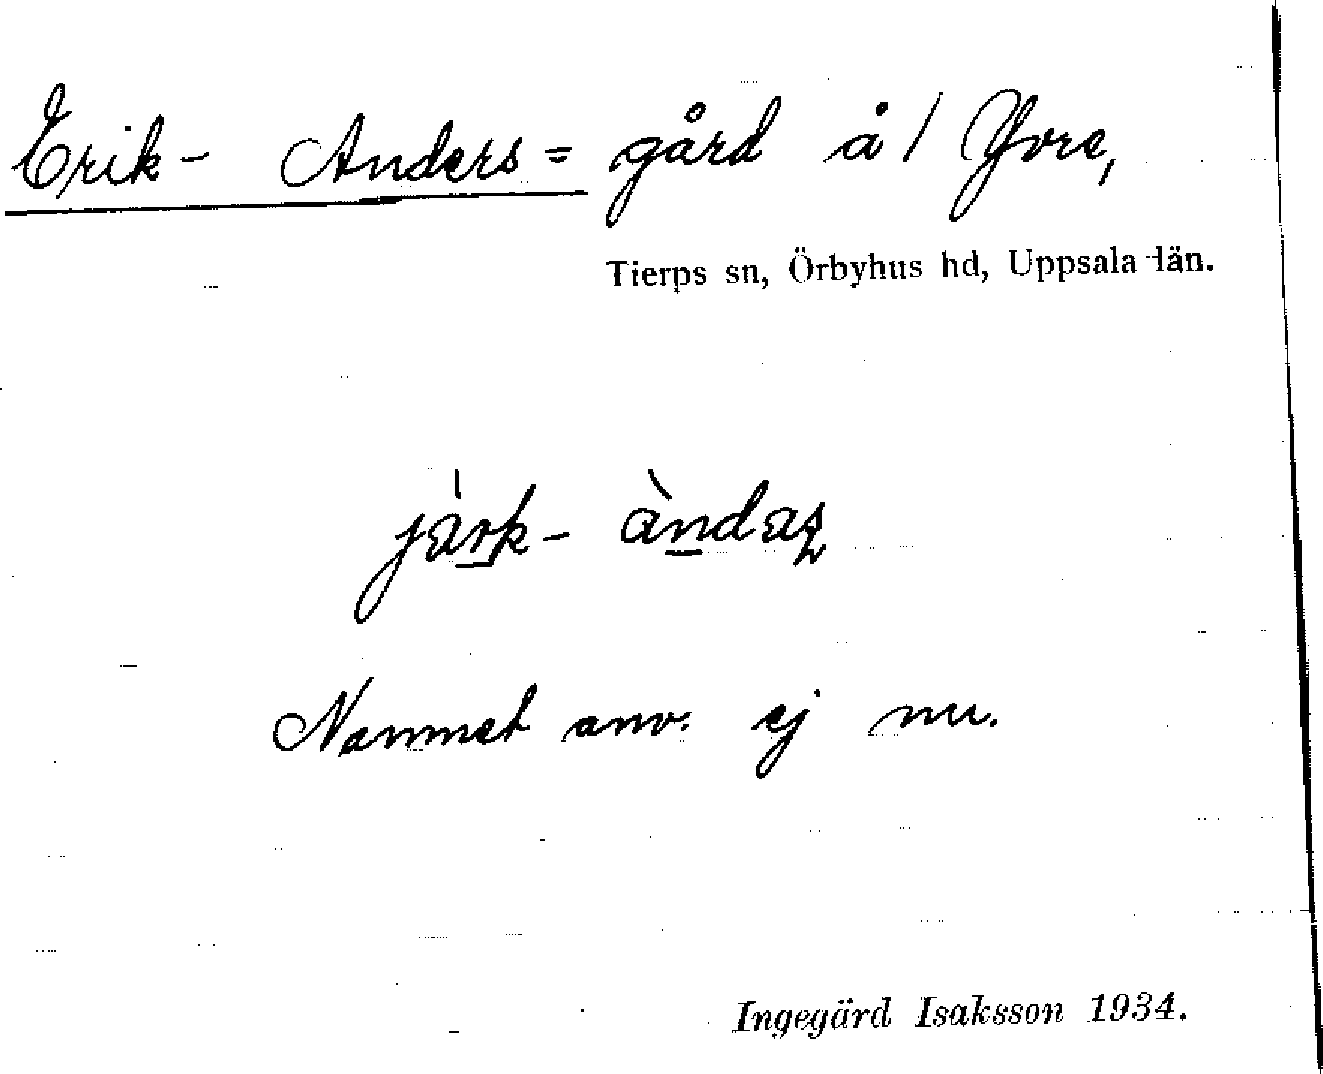 Erik- Anders= gård å/ Yvre,
Tierps sn, Örbyhus hd, Uppsala län.
jàrk- àndaʂ
Namnet anv. ej nu.
Ingegärd Isaksson 1934.